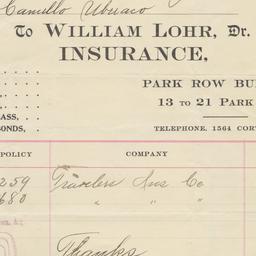 Camillo
To WILLIAM LOHR, Dr.
INSURANCE,
PARK ROW BU
13 TO 21 PARK
ASS,
BONDS,
TELEPHONE, 1564 COR
POLICY COMPANY
259 Travelers Ins Co
680 " " "
Thanks